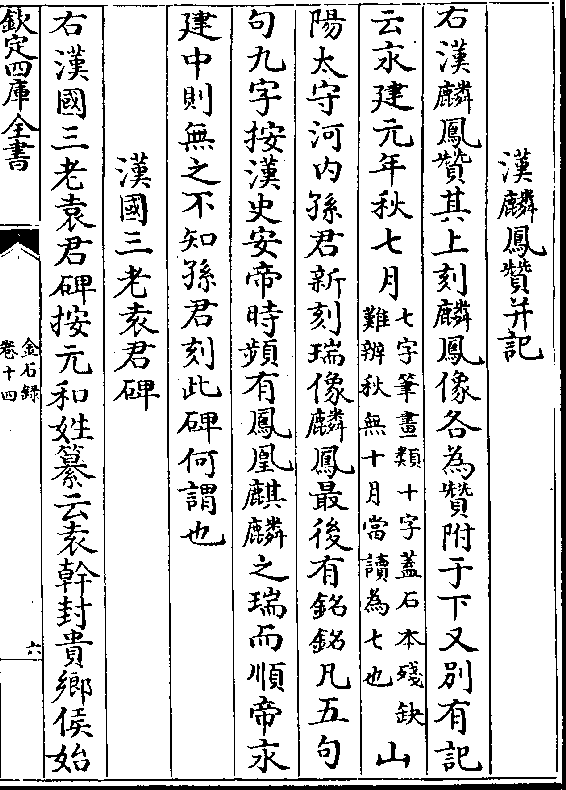 漢麟鳳贊并記
右漢麟鳳贊其上刻麟鳳像各為贊附于下又別有記
云永建元年秋七月七字筆畫類十字蓋石本殘缺難辨秋無十月當讀為七也山
陽太守河内孫君新刻瑞像麟鳳最後有銘銘凡五句
句九字按漢史安帝時頻有鳳凰麒麟之瑞而順帝永
建中則無之不知孫君刻此碑何謂也
漢國三老袁君碑
右漢國三老袁君碑按元和姓纂云袁幹封貴鄉侯始
欽定四庫全書
金石録
卷十四
六